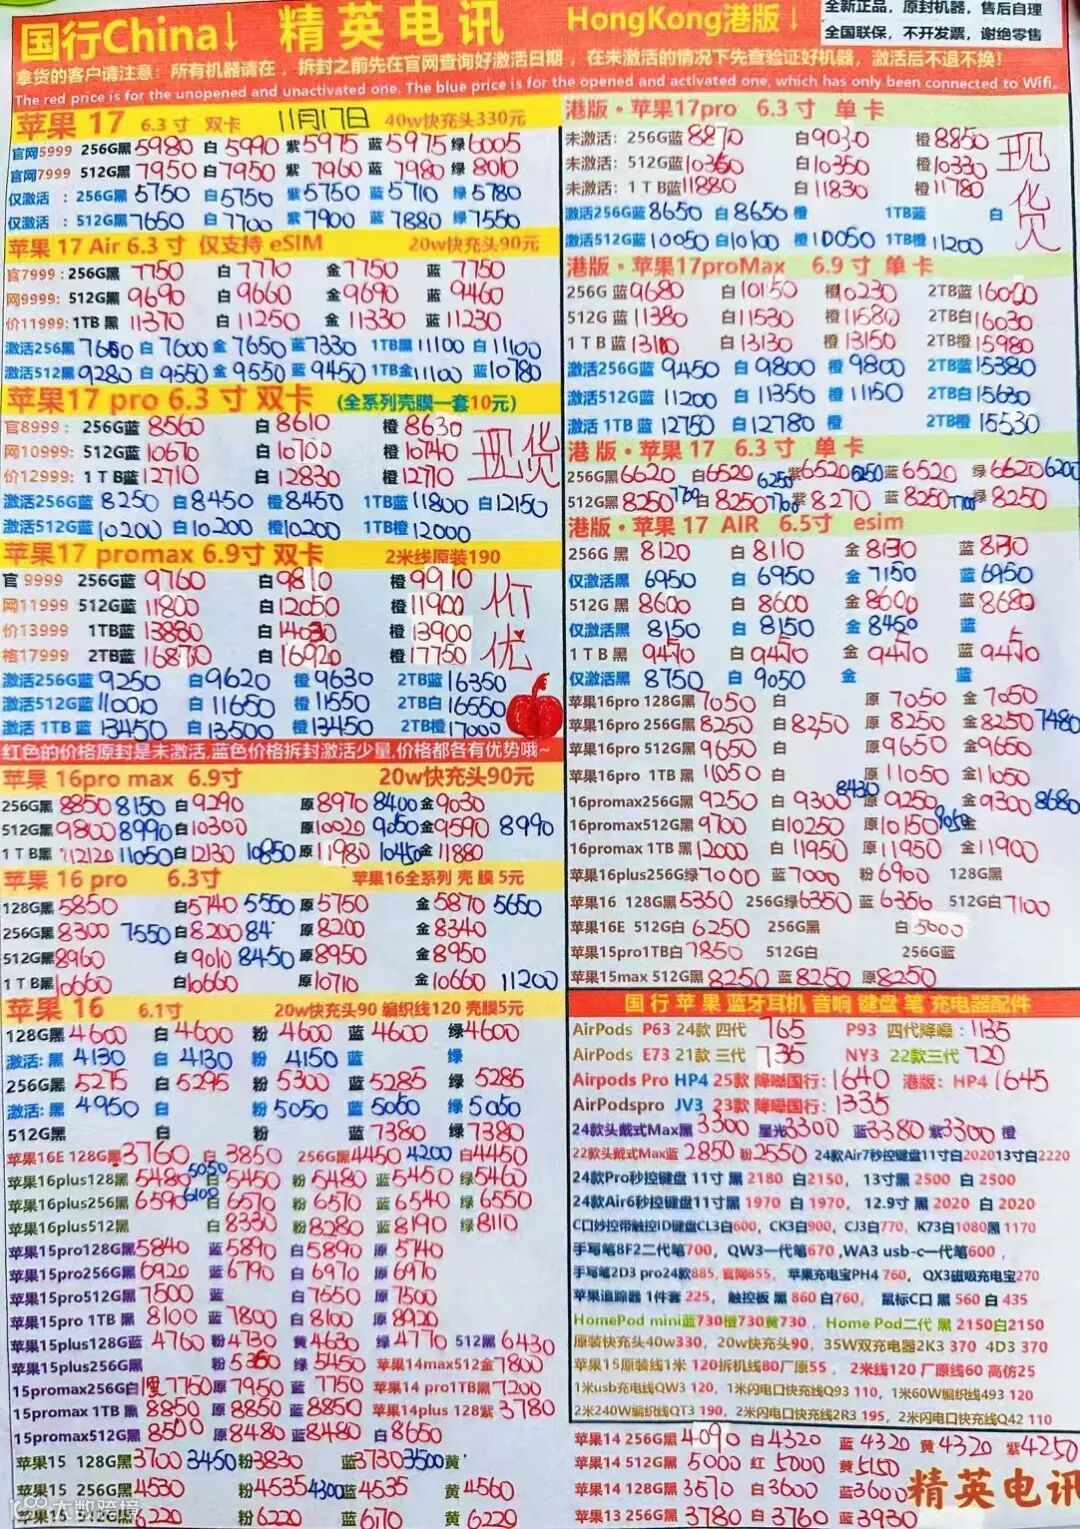 国行China↓ 精英电讯 HongKong港版↓
全新正品，原封机器，售后自理
全国联保，不开发票，谢绝零售
拿货的客户请注意：所有机器请在，拆封之前先在官网查询好激活日期，在未激活的情况下先查验证好机器，激活后不退不换！
The red price is for the unopened and unactivated one. The blue price is for the opened and activated one, which has only been connected to Wifi.
苹果 17 6.3寸 双卡 11月17日 40w快充头330元
官网5999 256G黑5980 白5990 紫5975 蓝5975 绿6005
官网7999 512G黑7950 白7950 紫7960 蓝7980 绿8010
仅激活：256G黑5750 白5750 紫5750 蓝5710 绿5780
仅激活：512G黑7650 白7700 紫7900 蓝7880 绿7550
苹果 17 Air 6.3寸 仅支持 eSIM 20w快充头90元
官7999：256G黑7750 白7770 金7750 蓝7750
网9999：512G黑9690 白9660 金9690 蓝9460
价11999：1TB 黑11370 白11250 金11330 蓝11230
激活256黑7660 白7600 金7650 蓝7330 1TB黑11100 白11100
激活512黑9280 白9550 金9550 蓝9450 1TB金11100 蓝10780
苹果17 pro 6.3 寸 双卡 (全系列壳膜一套10元)
官8999：256G蓝8560 白8610 橙8630
网10999：512G蓝10670 白10700 橙10740
价12999：1TB蓝12710 白12830 橙12770
现货
激活256G蓝8250 白8450 橙8450 1TB蓝11800 白12150
激活512G蓝10200 白10200 橙10200 1TB橙12000
苹果17 promax 6.9寸 双卡 2米线原装190
官9999 256G蓝9760 白9810 橙9910
网11999 512G蓝11800 白12050 橙11900
价13999 1TB蓝13880 白14030 橙13900
格17999 2TB蓝16870 白16920 橙17750
价优
激活256G蓝9250 白9620 橙9630 2TB蓝16350
激活512G蓝11000 白11650 橙11550 2TB白16550
激活 1TB蓝13450 白13500 橙13450 2TB橙17000
红色的价格原封是未激活,蓝色价格拆封激活少量,价格都各有优势哦~
苹果 16pro max 6.9寸 20w快充头90元
256G黑8850 8150 白9290 原8970 8400 金9030
512G黑9800 8990 白10300 原10020 9050 金9590 8990
1TB黑12120 11050 白12130 10850 原11980 10450 金11880
苹果 16 pro 6.3寸 苹果16全系列 壳膜 5元
128G黑5850 白5740 5550 原5750 金5870 5650
256G黑8300 7550 白8200 84 原8200 金8340
512G黑8960 白9010 8450 原8950 金8950
1TB黑10660 白10660 原10710 金10660 11200
苹果 16 6.1寸 20w快充头90 编织线120 壳膜5元
128G黑4600 白4600 粉4600 蓝4600 绿4600
激活：黑4130 白4130 粉4150 蓝 绿
256G黑5275 白5295 粉5300 蓝5285 绿5285
激活：黑4950 白 粉5050 蓝5050 绿5050
512G黑 白 粉 蓝7380 绿7380
苹果16E 128G黑3760 白3850 256G黑4450 4200 白4450
苹果16plus128黑5480 5050 白5450 粉5480 蓝5450 绿5460
苹果16plus256黑6590 6100 白6570 粉6570 蓝6540 绿6550
苹果16plus512黑 白8330 粉8280 蓝8190 绿8110
苹果15pro128G黑5840 蓝5890 白5890 原5740
苹果15pro256G黑6920 蓝6790 白6970 原6970
苹果15pro512G黑7500 蓝 白7650 原7500
苹果15pro 1TB 黑8100 蓝7800 白8100 原8920
苹果15plus128G蓝4760 粉4730 黄4630 绿4770 512黑6430
苹果15plus256G黑 粉5350 绿5450 苹果14max512金7800
15promax256G白 黑7750 原7950 蓝7750 苹果14 pro1TB黑7200
15promax 1TB 黑8850 原8850 蓝8850 苹果14plus 128紫3780
15promax512G黑8500 原8480 蓝8480 白8650
苹果15 128G黑3700 3450 粉3830 蓝3730 3500 黄
苹果15 256G黑4530 粉4535 4300 蓝4535 黄4560
苹果15 512G黑6220 粉6220 蓝6170 黄6220
大数跨境
港版·苹果17pro 6.3寸 单卡
未激活：256G蓝8870 白9030 橙8850
未激活：512G蓝10360 白10350 橙10330
未激活：1TB蓝11880 白11830 橙11780
现货
激活256G蓝8650 白8650 橙 1TB蓝 白
激活512G蓝10050 白10100 橙10050 1TB橙11200
港版·苹果17proMax 6.9寸 单卡
256G 蓝9680 白10150 橙10230 2TB蓝16000
512G 蓝11380 白11530 橙11580 2TB白16030
1TB 蓝13110 白13130 橙13150 2TB橙15980
激活256G蓝9450 白9800 橙9800 2TB蓝15380
激活512G蓝11200 白11350 橙11150 2TB白15630
激活 1TB 蓝12750 白12780 橙 2TB橙15530
港版·苹果17 6.3寸 单卡
256G黑6620 白6520 6250 紫6520 6250 蓝6520 绿6620 6200
512G黑8250 7700 白8250 7700 紫8270 蓝8250 7700 绿8250
港版·苹果 17 AIR 6.5寸 esim
256G 黑8120 白8110 金8130 蓝8130
仅激活黑6950 白6950 金7150 蓝6950
512G 黑8600 白8600 金8600 蓝8680
仅激活黑8150 白8150 金8450 蓝
1TB 黑9450 白9450 金9450 蓝9450
仅激活黑8750 白9050 金 蓝
苹果16pro 128G黑7050 白 原7050 金7050
苹果16pro 256G黑8250 白8250 原8250 金8250 7480
苹果16pro 512G黑9650 白 原9650 金9650
苹果16pro 1TB 黑11050 白 原11050 金11050
16promax256G黑9250 白9300 8430 原9250 金9300 8680
16promax512G黑9700 白10250 原10150 9050 金
16promax 1TB 黑12000 白11950 原11950 金11900
苹果16plus256G绿7000 蓝7000 粉6900 128G黑
苹果16 128G黑5350 256G绿6350 蓝6350 512G白7100
苹果16E 512G白6250 256G黑 白5600
苹果15pro1TB白7850 512G白 256G蓝
苹果15max 512G黑8250 蓝8250 原8250
国行苹果蓝牙耳机 音响 键盘 笔 充电器配件
AirPods P63 24款 四代 765 P93 四代降噪：1135
AirPods E73 21款 三代 735 NY3 22款三代 720
Airpods Pro HP4 25款 降噪国行：1640 港版：HP4 1645
AirPodspro JV3 23款 降噪国行：1335
24款头戴式Max黑3300 星光3300 蓝3380 紫3300 橙
22款头戴式Max蓝 2850 粉2550 24款Air7秒控键盘11寸白2020 13寸白2220
24款Pro秒控键盘 11寸 黑 2180 白2150，13寸黑 2500 白 2500
24款Air6秒控键盘11寸黑 1970 白 1970，12.9寸 黑 2020 白 2020
C口妙控带触控ID键盘CL3白600，CK3白900，CJ3白770，K73白1080黑 1170
手写笔8F2二代笔700，QW3一代笔670 ,WA3 usb-c一代笔600，
手写笔2D3 pro24款885, 官网855，苹果充电宝PH4 760，QX3磁吸充电宝270
苹果追踪器 1件套 225，触控板 黑 860 白760，鼠标C口 黑 560 白 435
HomePod mini蓝730橙730黄730，Home Pod二代 黑 2150白2150
原装快充头40w330，20w快充头90，35W双充电器2K3 370 4D3 370
苹果15原装线1米 120拆机线80厂原55，2米线120 厂原线60 高仿25
1米usb充电线QW3 120，1米闪电口快充线Q93 110，1米60W编织线493 120
2米240W编织线QT3 190，2米闪电口快充线2R3 195，2米闪电口快充线Q42 110
苹果14 256G黑4090 白4320 蓝4320 黄4320 紫4250
苹果14 512G黑5000 红5000 黄5150
苹果14 128G黑3570 白3600 蓝3600
苹果13 256G黑3780 白3760 蓝3930
精英电讯